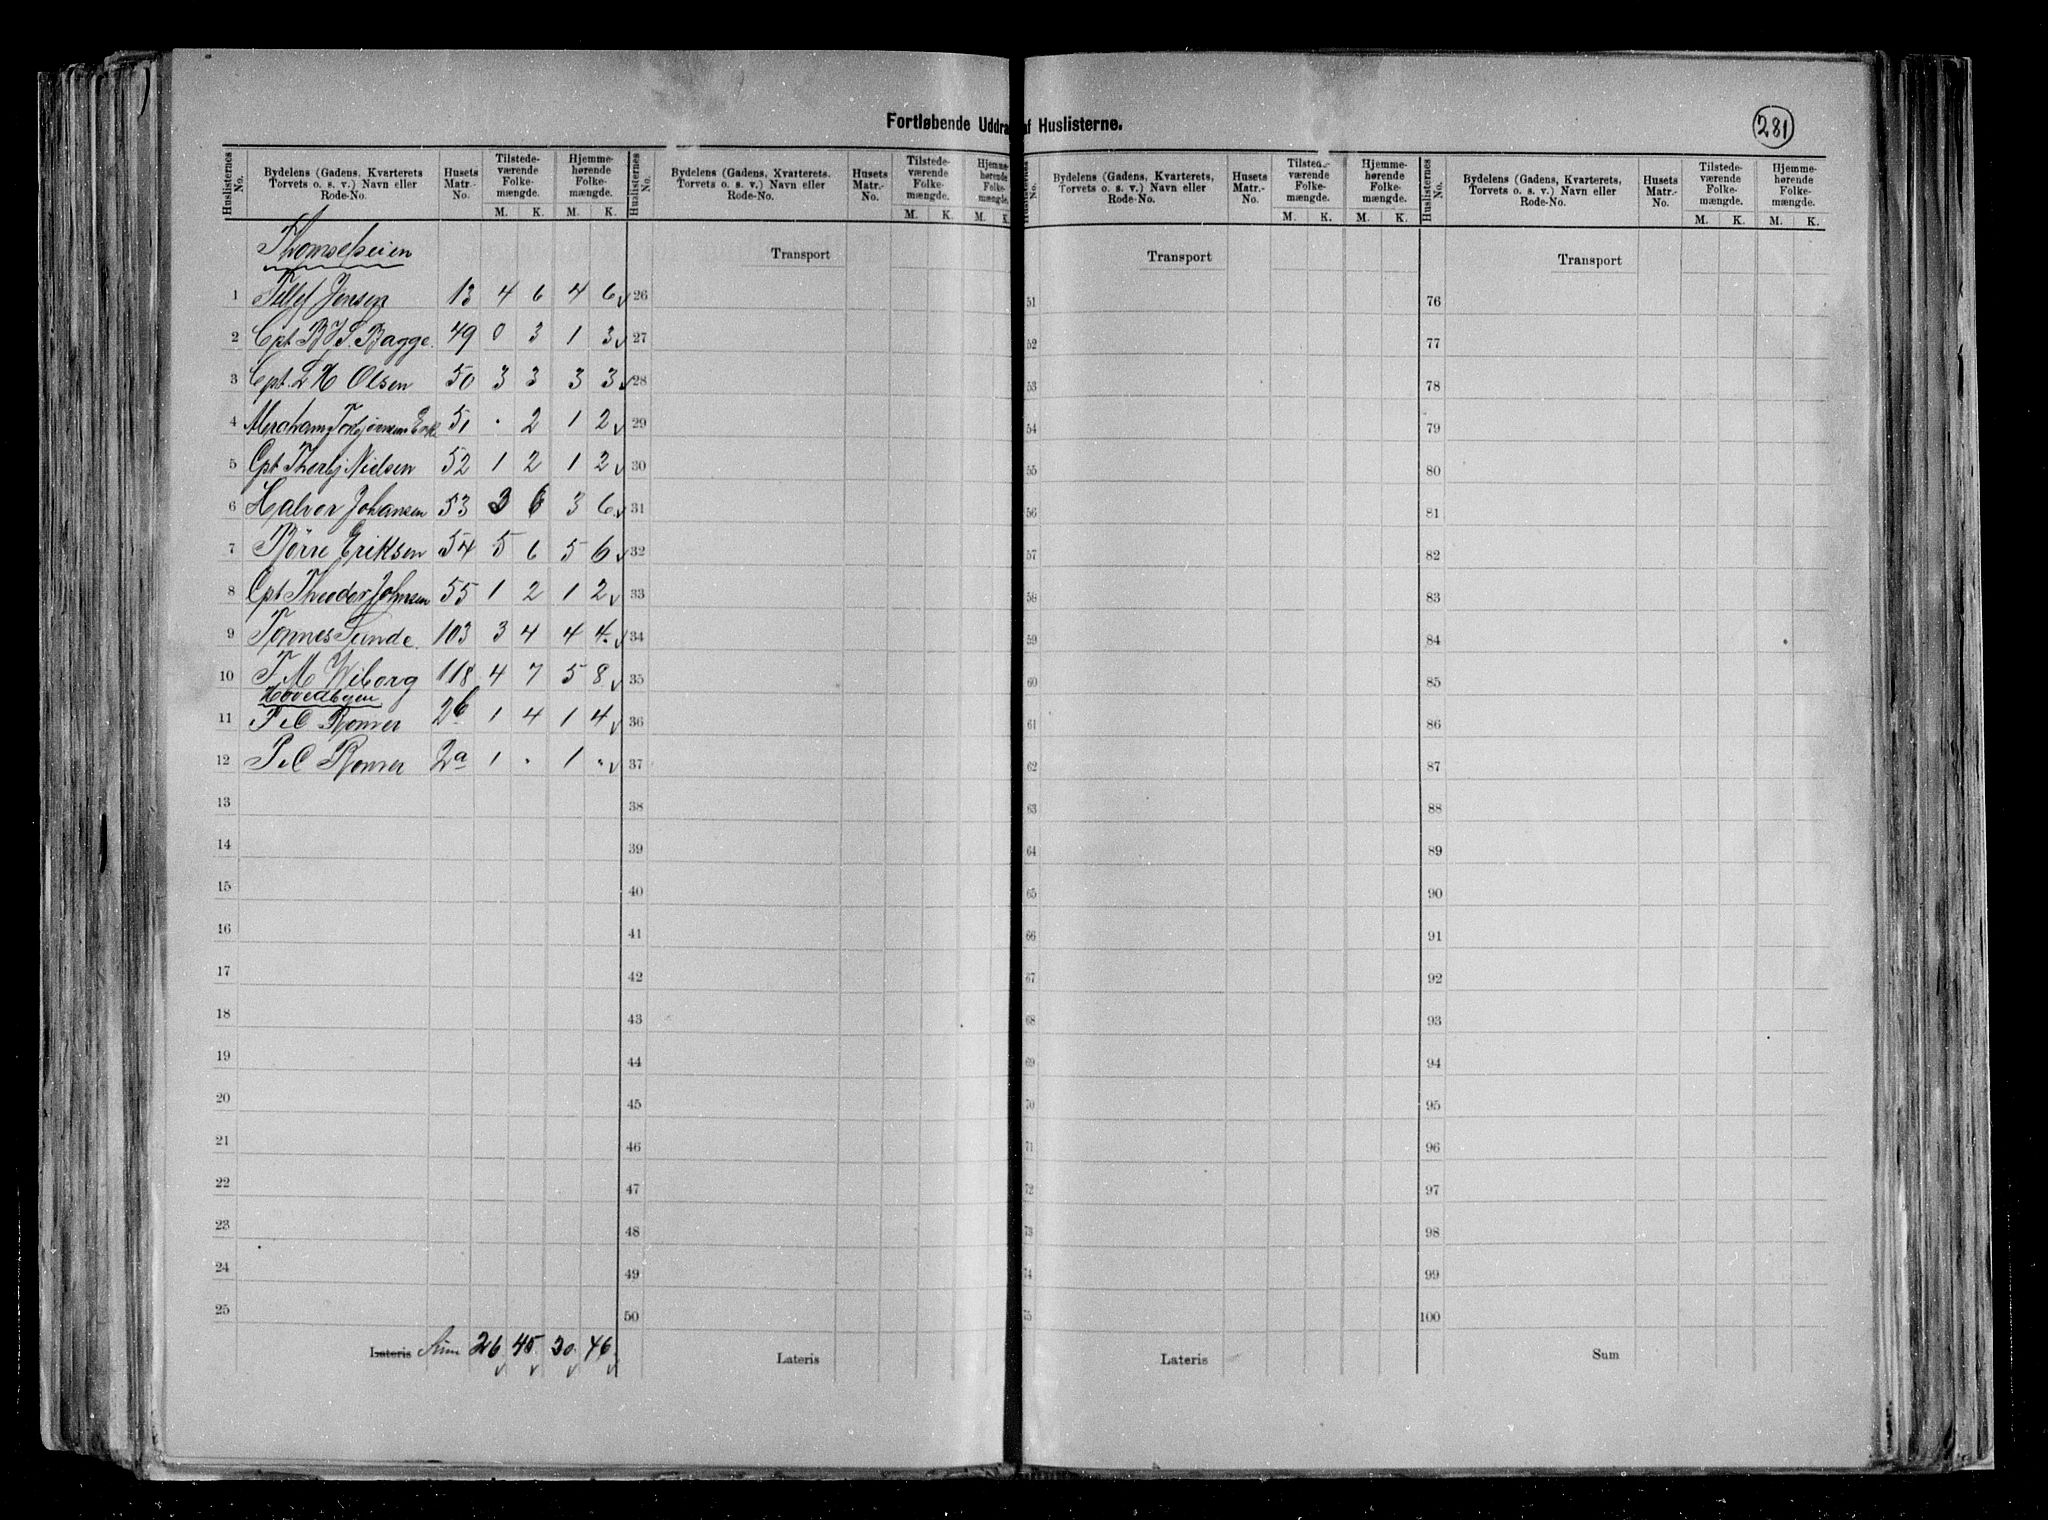 Fortløbende Uddra af Huslisterne.
281
Huslisternes No. Bydelens (Gadens, Kvarterets, Torvets o. s. v.) Navn eller Rode-No. Husets Matr.-No. Tilstede-værende Folke-mængde. M. K. Hjemme-hørende Folke-mængde. M. K.
Huslisternes No. Bydelens (Gadens, Kvarterets, Torvets o. s. v.) Navn eller Rode-No. Husets Matr.-No. Tilstede-værende Folke-mængde. M. K. Hjemme-hørende Folke-mængde. M. K.
Huslisternes No. Bydelens (Gadens, Kvarterets, Torvets o. s. v.) Navn eller Rode-No. Husets Matr.-No. Tilstede-værende Folke-mængde. M. K. Hjemme-hørende Folke-mængde. M. K.
Huslisternes No. Bydelens (Gadens, Kvarterets, Torvets o. s. v.) Navn eller Rode-No. Husets Matr.-No. Tilstede-værende Folke-mængde. M. K. Hjemme-hørende Folke-mængde. M. K.
Transport Transport Transport
1 Jensen 13 4 6 4 6 26 51 76
2 Cpt. Bagge. 49 0 3 1 3 27 52 77
3 Cpt. L H Olsen 50 3 3 3 3 28 53 78
4 51 . 2 1 2 29 54 79
5 Cpt Thorbj Nielsen 52 1 2 1 2 30 55 80
6 Halvor Johansen 53 3 6 3 6 31 56 81
7 Börre Eriksen 54 5 6 5 6 32 57 82
8 Cpt Theodor Johnsen 55 1 2 1 2 33 58 83
9 Tönnes Lunde. 103 3 4 4 4 34 59 84
10 T M Wiborg 118 4 7 5 8 35 60 85
Hovedbyen
11 P C 2b 1 4 1 4 36 61 86
12 P C 2a 1 " 1 " 37 62 87
13 38 63 88
14 39 64 89
15 40 65 90
16 41 66 91
17 42 67 92
18 43 68 93
19 44 69 94
20 45 70 95
21 46 71 96
22 47 72 97
23 48 73 98
24 49 74 99
25 50 75 100
Lateris Sum 26 45 30 46 Lateris Lateris Sum